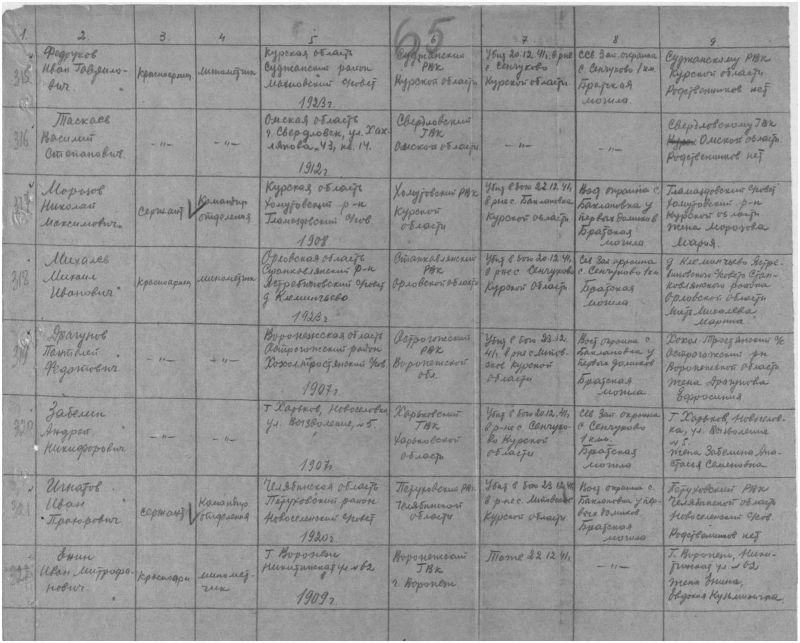 65
1. 2. 3. 4 5 6 7 8 9
315
Федоуков
Иван Гаврило-
вич
Красноарм.
минометчик
Курская область
Суджанский район
Махновский с/совет
1923г
Суджанский
РВК
Курской области
Убит 20.12.41г. в р-не
с Сенчуково
Курской области
Сев Зап. окраина
с Сенчуково 1 км.
Братская
могила
Суджанскому РВК
Курской области
Родственников нет
316
Таскаев
Василий
Степанович
-"-
-"-
Омская область
г. Свердловск, ул.
43, кв. 14.
1912г.
Свердловский
ГВК
Омской области
-"-
-"-
Свердловскому ГВК
Омской область
Родственников нет
317
Морозов
Николай
Максимович
Сержант
Командир
отделения
Курская область
р-н
1908
РВК
Курской
области
Убит в бою 22.12.41г
в р-не с. Баклановка
Курской области
Вост окраина с
Баклановка у
первых домиков
Братская
могила
р-н
Курской области
жена Морозова
Мария.
318
Михалев
Михаил
Иванович
Красноармеец
минометчик
Орловская область
Становлянский р-н
1923г
Становлянский
РВК
Орловской области
Убит в бою 20.12.41г
в р-не с Сенчуково
Курской области
Сев Зап окраина
с Сенчуково 1 км
Братская
могила
района
Орловской области
Мать Михалева
Марина
319
Драгунов
Пантелей
Федотович
-"-
-"-
Воронежская область
Острогожский район
1907г
Острогожский
РВК
Воронежской
обл.
Убит в бою 23.12.
41г. в р-не с
Курской
области
Вост окраина с
Баклановка у
первых домиков
Братская
могила
Острогожский рн
Воронежской области
жена Драгунова
Ефросиния
320
Забелин
Андрей
Никифорович
-"-
-"-
г Харьков, Новоселовка
ул. Вызволение, №5.
1907г.
Харьковский
ГВК
Харьковской
области
Убит в бою 20.12.41г,
в р-не с Сенчуко-
во Курской
области
Сев Зап. окраина
с Сенчуково
1 км.
Братская
могила
Г Харьков, Новоселов-
ка, ул. Вызволение
№5.
жена Забелина Ана-
стасия Семеновна
321
Игнатов
Иван
сержант
Командир
отделения
Челябинская область
Петуховский район
Новоселенский с/совет
1920г
Петуховский РВК
Челябинской
области
Убит в бою 23.12.41г
в р-не с.
Курской области
Вост окраина с
Баклановка у пер-
вых домиков
Братская
могила
Петуховский РВК
Челябинской область
Новоселенский с/сов.
Родственников нет
322
Енин
Иван Митрофа-
нович
Красноарм
миномет-
чик
Г Воронеж
Никитинская ул №62
1909г
Воронежский
ГВК
г. Воронеж
Тоже 22.12.41г
-"-
Г. Воронеж, Ники-
тинская ул №62
жена Енина,
Евдокия Кузьминична.